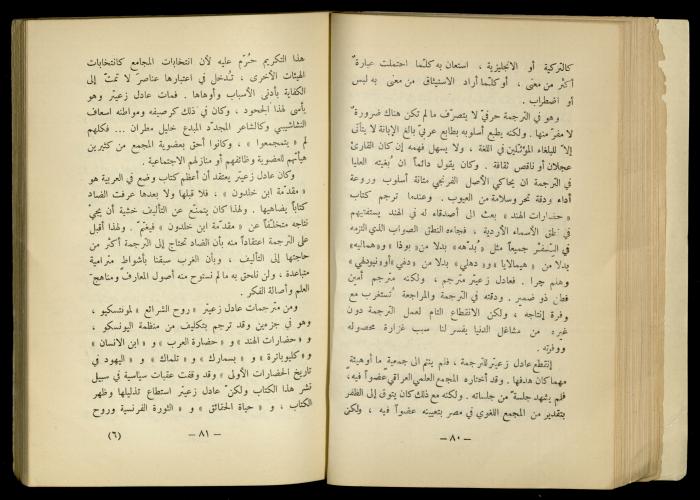 كالتركية أو الانجليزية ، استعان به كلّما احتملت عبارة"
أكثر من معنى ، أو كلّما أراد الاستيثاق من معنى به لبس
أو اضطراب .
وهو في الترجمة حرفيّ لا يتصرّف ما لم تكن هناك ضرورة"
لا مفرّ منها . ولكنه يطبع أسلوبه بطابع عربيّ بالغ الإبانة لا يتأتى
إلاّ للبلغاء المؤثّلين في اللغة ، ولا يسهل فهمه إن كان القارئ
عجلان أو ناقص ثقافة . وكان يقول دائماً ان بُغيته العليا
في الترجمة ان يحاكي الأصل الفرنجي متانة أسلوب وروعة
أداء ودقة تحرّ وسلامة من العيوب . وعندما ترجم كتاب
« حضارات الهند » بعث الى أصدقاء له في الهند يستفتيهم
في نطق الأسماء الأردية ، فجاءه النطق الصواب الذي التزمه
في السِّفر جميعاً مثل « بُدّهه » بدلا من « بوذا » و « هماليه »
بدلا من « هيمالايا » و « دهلي » بدلا من « دلهي » أو « نيودلهي »
وهلم جرا . فعادل زعيتر مترجم ، ولكنه مترجم أمين
فطن ذو ضمير . ودقته في الترجمة والمراجعة تُستغرب مع
وفرة إنتاجه ، ولكن الانقطاع التام لعمل الترجمة دون
غيره من مشاغل الدنيا يفسر لنا سبب غزارة محصوله
ووفرته .
إنقطع عادل زعيتر للترجمة ، فلم ينتم الى جمعية ما أو هيئة
مهما كان هدفها . وقد أختاره المجمع العلمي العراقي عضواً فيه،
فلم يشهد جلسة من جلساته . ولكنه مع ذلك كان يتوق إلى الظفر
بتقدير من المجمع اللغوي في مصر بتعيينه عضواً فيه ، ولكن
— ٨٠ —
هذا التكريم حُرّم عليه لأن انتخابات المجامع كانتخابات
الهيئات الأخرى ، تُدخل في اعتبارها عناصر لا تمتّ إلى
الكفاية بأدنى الأسباب وأوهاها . فمات عادل زعيتر وهو
يأسى لهذا الجحود ، وكان في ذلك كرصيفه ومواطنه اسعاف
النشاشيبي وكالشاعر المجدّد المبدع خليل مطران ... فكلهم
لم « يتمجمعوا » ، وكانوا أحق بعضوية المجمع من كثيرين
هيأتهم للعضوية وظائفهم أو منازلهم الاجتماعية .
وكان عادل زعيتر يعتقد أن أعظم كتاب وضع في العربية هو
« مقدّمة ابن خلدون » ، فلا قبلها ولا بعدها عرفت الضاد
كتاباً يضاهيها . ولهذا كان يتمنّع عن التأليف خشية أن يجيء
نتاجه متخلّفاً عن « مقدّمة ابن خلدون » فيغتمّ . ولهذا أقبل
على الترجمة اعتقاداً منه بأن الضاد تحتاج إلى الترجمة أكثر من
حاجتها إلى التأليف ، وبأن الغرب سبقنا بأشواط مترامية
متباعدة ، ولن نلحق به ما لم نستوح منه أصول المعارف ومناهج
العلم وأصالة الفكر .
ومن مترجمات عادل زعيتر « روح الشرائع » لمونتسكيو ،
وهو في جزءين وقد ترجم بتكليف من منظمة اليونسكو ،
و « حضارات الهند » و « حضارة العرب » و « ابن الانسان »
و « كليوباترة » و « بسمارك » و « تلماك » و « اليهود في
تاريخ الحضارات الأولى » وقد وقفت عقبات سياسية في سبيل
نشر هذا الكتاب ولكنّ عادل زعيتر استطاع تذليلها وظهر
الكتاب ، و « حياة الحقائق » و « الثورة الفرنسية وروح
— ٨١ — (٦)